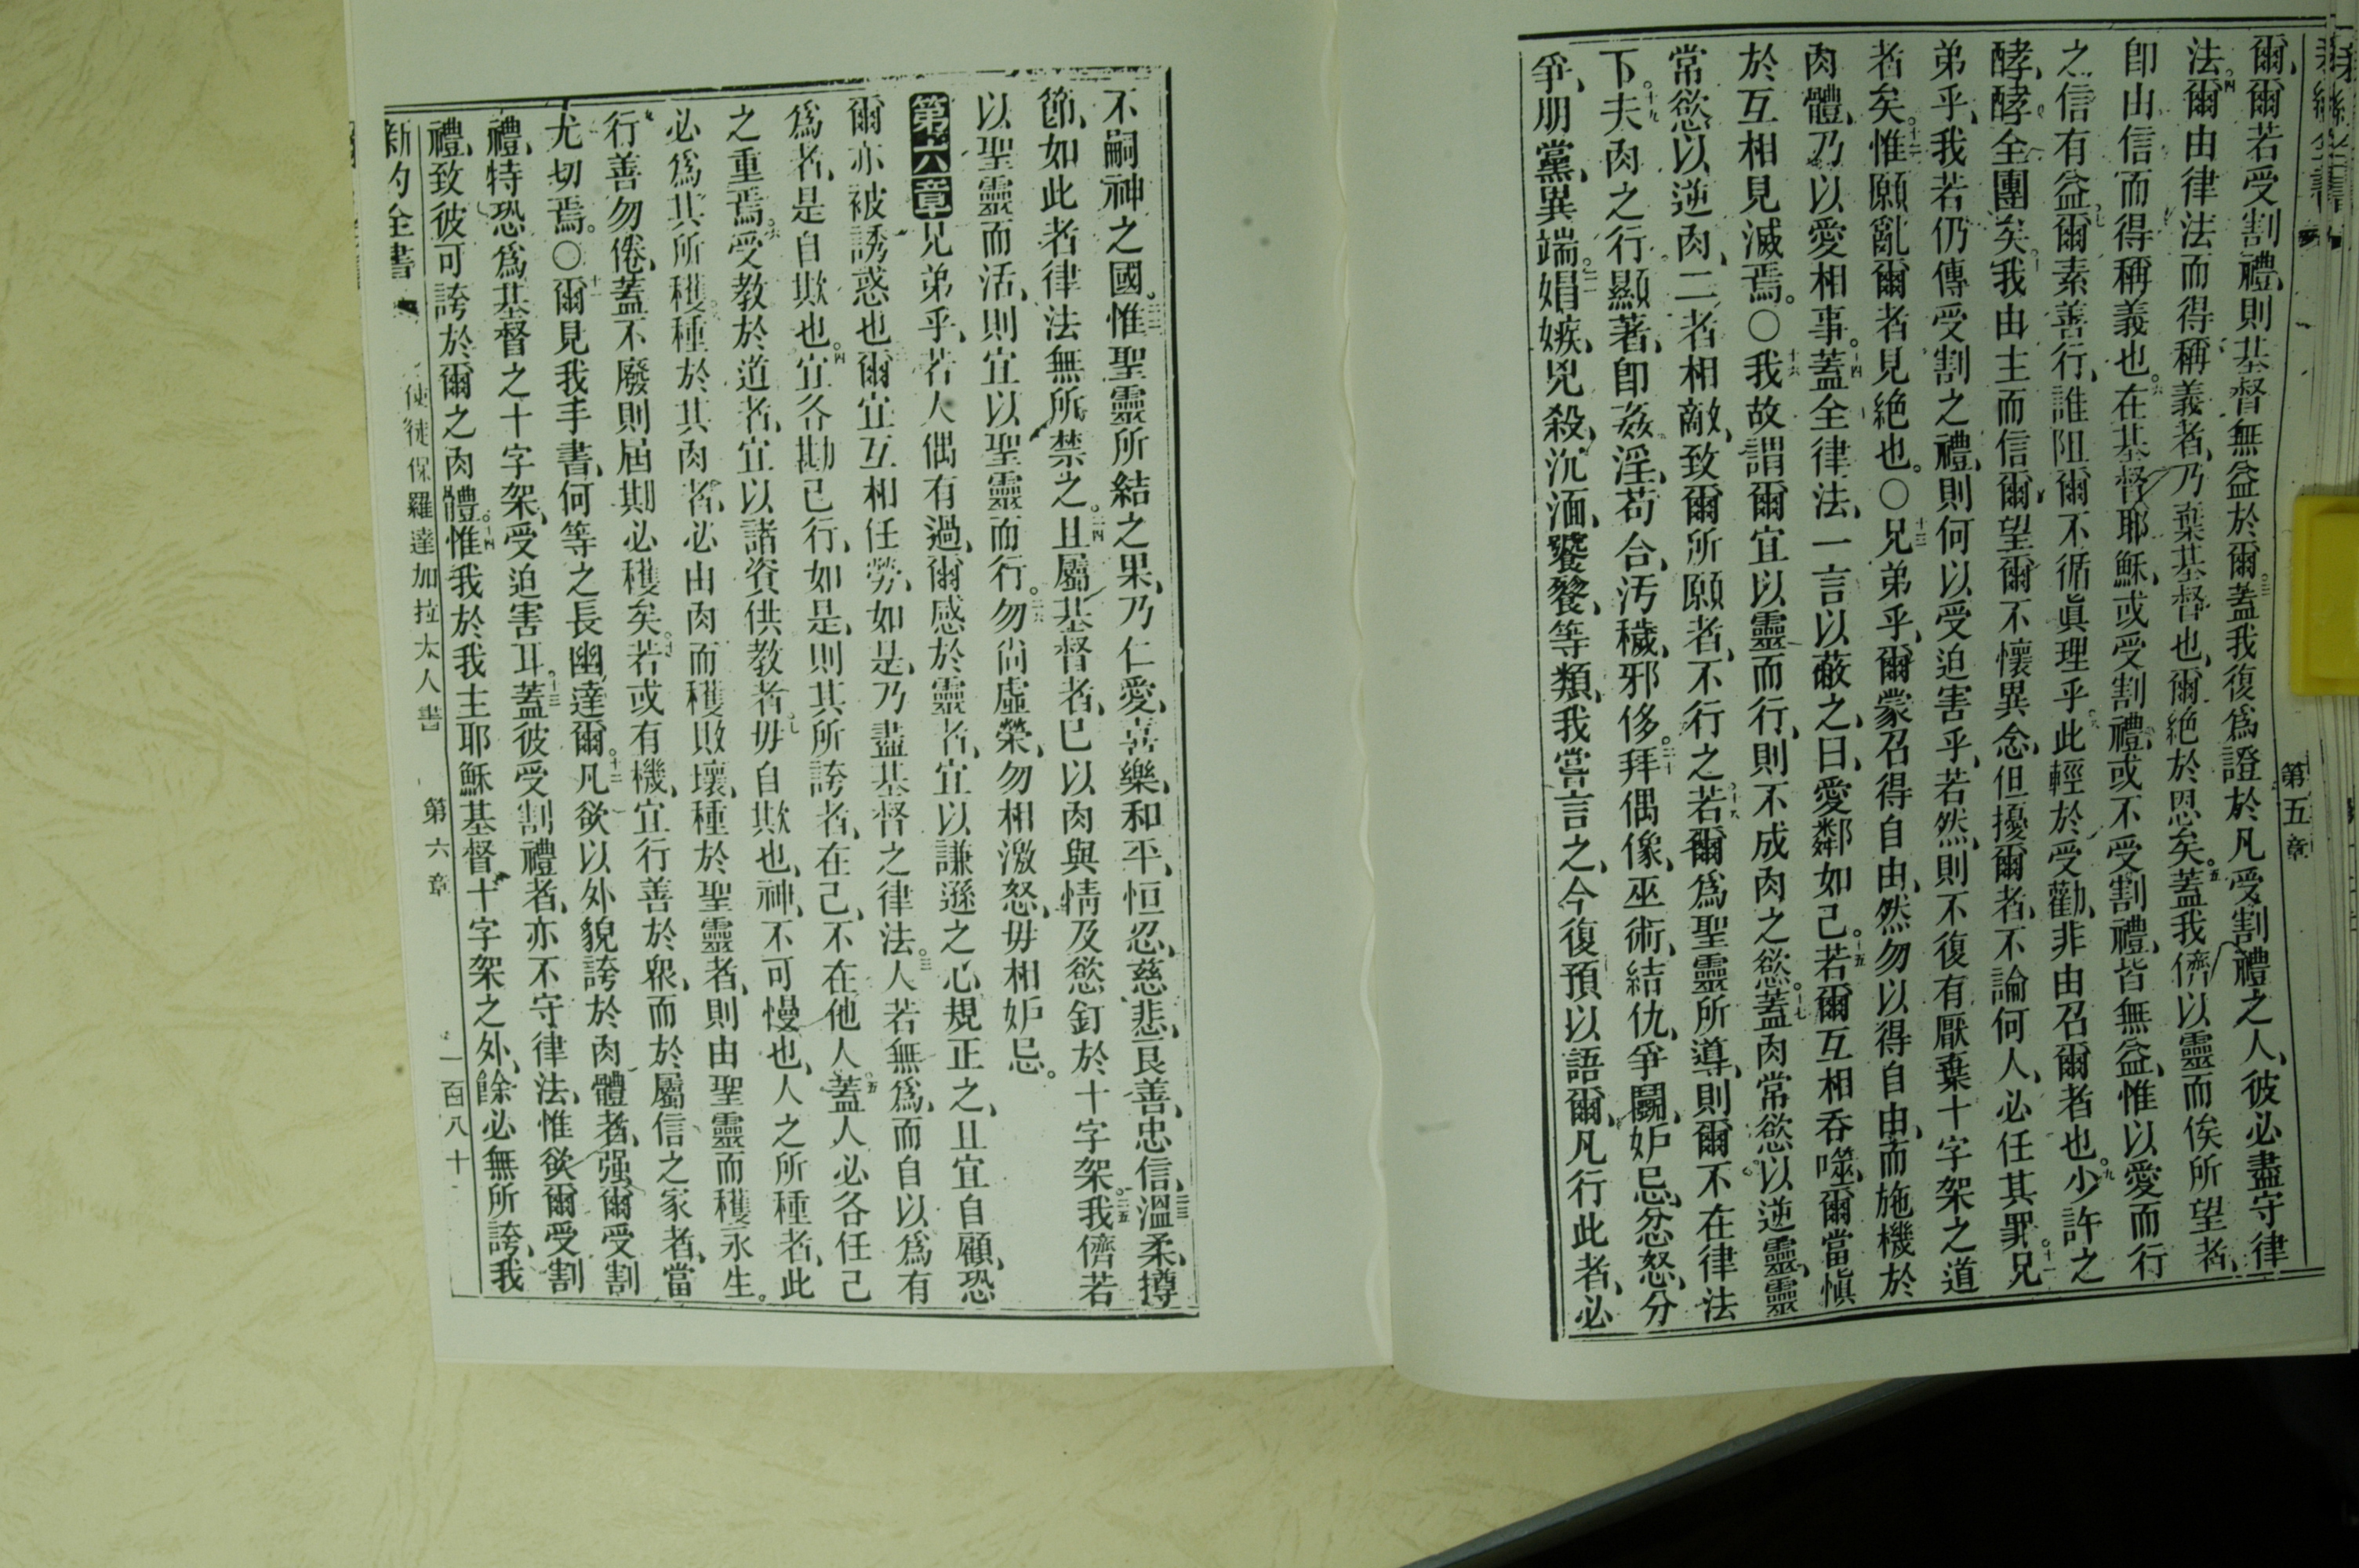 第五章
爾、爾若受割禮、則基督無益於爾。三蓋我復爲證於凡受割禮之人、彼必盡守律
法。四爾由律法而得稱義者、乃棄基督也、爾絶於恩矣。五蓋我儕以靈而俟所望者、
卽由信而得稱義也。六在基督耶穌、或受割禮、或不受割禮、皆無益、惟以愛而行
之信有益。七爾素善行、誰阻爾不循眞理乎。八此輕於受勸、非由召爾者也。九少許之
酵、酵全團矣。十我由主而信爾、望爾不懷異念、但擾爾者、不論何人、必任其罪。十一兄
弟乎、我若仍傳受割之禮、則何以受迫害乎、若然、則不復有厭棄十字架之道
者矣。十二惟願亂爾者見絶也。〇十三兄弟乎、爾蒙召得自由、然勿以得自由、而施機於
肉體、乃以愛相事。十四蓋全律法、一言以蔽之、曰、愛鄰如己。十五若爾互相吞噬、爾當愼
於互相見滅焉。〇十六我故謂爾宜以靈而行、則不成肉之慾。十七蓋肉常慾以逆靈、靈
常慾以逆肉、二者相敵、致爾所願者、不行之。十八若爾爲聖靈所導、則爾不在律法
下。十九夫肉之行顯著、卽姦淫、苟合、汚穢、邪侈。二十拜偶像、巫術、結仇、爭鬭、妒忌、忿怒、分
爭、朋黨、異端。二一娼嫉、兇殺、沉湎、饕餮、等類、我嘗言之、今復預以語爾、凡行此者、必
不嗣神之國。二二惟聖靈所結之果、乃仁愛、喜樂、和平、恒忍、慈悲、良善、忠信、二三溫柔、撙
節、如此者律法無所禁之。二四且屬基督者、已以肉與情及慾釘於十字架。二五我儕若
以聖靈而活、則宜以聖靈而行。二六勿尚虛榮、勿相激怒、毋相妒忌。
第六章兄弟乎、若人偶有過、爾感於靈者、宜以謙遜之心規正之、且宜自顧、恐
爾亦被誘惑也。二爾宜互相任勞、如是、乃盡基督之律法。三人若無爲、而自以爲有
爲者、是自欺也。四宜各勘已行、如是、則其所誇者、在己、不在他人。五蓋人必各任己
之重焉。六受教於道者、宜以諸資供教者。七毋自欺也、神、不可慢也、人之所種者、此
必爲其所穫。八種於其肉者、必由肉而穫敗壞、種於聖靈者、則由聖靈而穫永生。
九行善勿倦、蓋不廢則屆期必穫矣。十若或有機、宜行善於衆、而於屬信之家者、當
尤切焉。〇十一爾見我手書、何等之長幽達爾。十二凡欲以外貌誇於肉體者、强爾受割
禮、特恐爲基督之十字架、受迫害耳。十三蓋彼受割禮者、亦不守律法、惟欲爾受割
禮、致彼可誇於爾之肉體。十四惟我於我主耶穌基督十字架之外、餘必無所誇、我
新約全書 使徒保羅達加拉太人書 第六章 一百八十